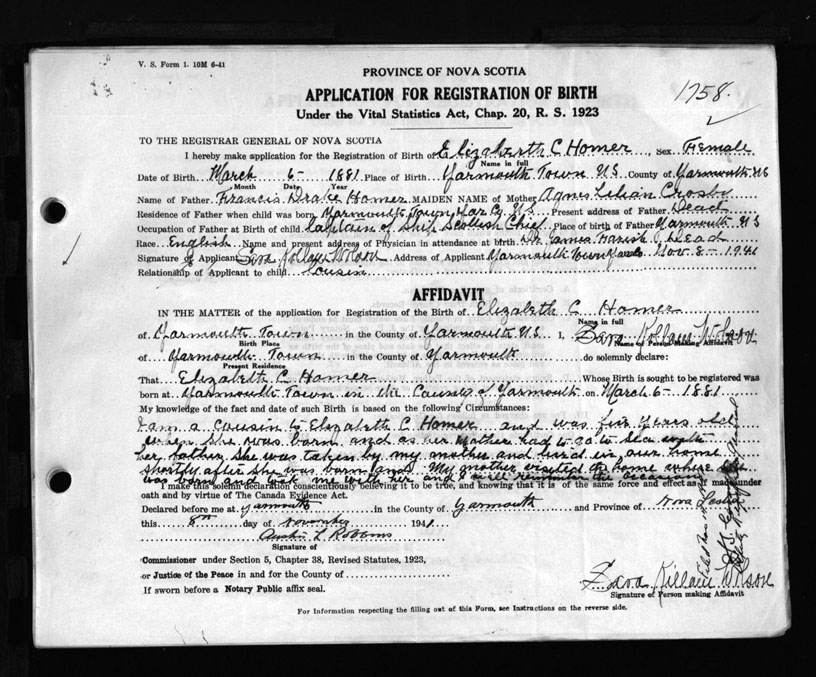 V. S. Form 1. 10M 6-41
PROVINCE OF NOVA SCOTIA
1758.
APPLICATION FOR REGISTRATION OF BIRTH
Under the Vital Statistics Act, Chap. 20, R. S. 1923
TO THE REGISTRAR GENERAL OF NOVA SCOTIA
I hereby make application for the Registration of Birth of Elizabeth C Homer, Sex Female
Name in full
Date of Birth March 6- 1881 Place of Birth Yarmouth Town N S County of Yarmouth N S
Month Date Year
Name of Father Francis Drake Homer MAIDEN NAME of Mother Agnes Lilian Crosby
Residence of Father when child was born Yarmouth Town, Yar Co N S Present address of Father Dead
Occupation of Father at Birth of child Captain of Ship Scottish Chief Place of birth of Father Yarmouth N S
Race English Name and present address of Physician in attendance at birth Dr James Dead
Signature of Applicant Killam Address of Applicant Yarmouth Town Nov. 8 - 1941
Relationship of Applicant to child cousin
AFFIDAVIT
IN THE MATTER of the application for Registration of the Birth of Elizabeth C Homer
Name in full
of Yarmouth Town in the County of Yarmouth N.S. I, Killam
Birth Place Name of Person Making Affidavit
of Yarmouth Town in the County of Yarmouth do solemnly declare:
Present Residence
That Elizabeth C Homer Whose Birth is sought to be registered was
born at Yarmouth Town in the County of Yarmouth on March 6 - 1881
My knowledge of the fact and date of such Birth is based on the following Circumstances:
I am a cousin to Elizabeth C Homer and was five years old
when she was born and as her Mother had to go to Sea with
her father she was taken by my mother and lived in our home
shortly after she was born. My mother visited the home where she
was born and took me with her and I well remember the occasion
I make this solemn declaration conscientiously believing it to be true, and knowing that it is of the same force and effect as if made under
oath and by virtue of The Canada Evidence Act.
Declared before me at Yarmouth in the County of Yarmouth and Province of Nova Scotia
this 8th day of November 1941
Austin L Robbins
Signature of
Commissioner under Section 5, Chapter 38, Revised Statutes, 1923,
or Justice of the Peace in and for the County of
If sworn before a Notary Public affix seal.
Killam
Signature of Person making Affidavit
For Information respecting the filling out of this Form, see Instructions on the reverse side.